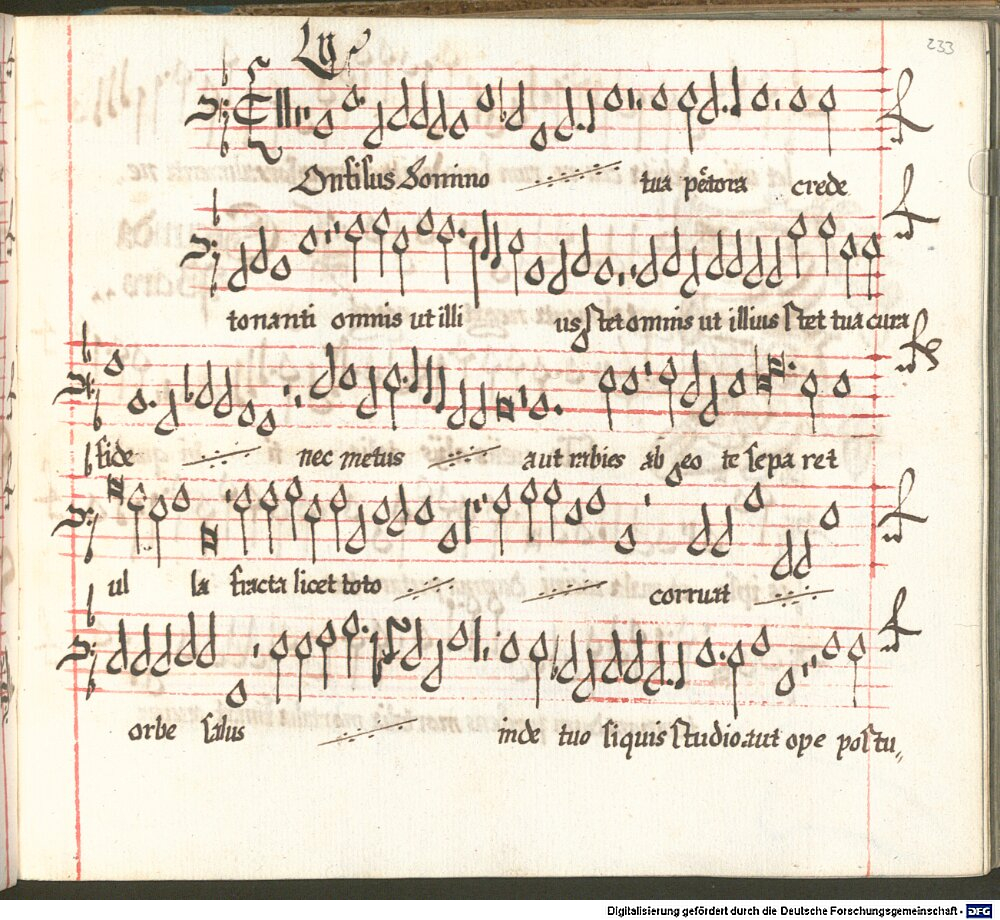 233
Onsilus Domino tua pectora crede
tonanti omnis ut illi us stet omnis ut illius stet tua cura
fide nec metus aut rabies ab eo te sepa ret
ul la fracta licet toto corruat
orbe salus inde tuo siquis studio aut ope postu„
Digitalisierung gefördert durch die Deutsche Forschungsgemeinschaft - DFG